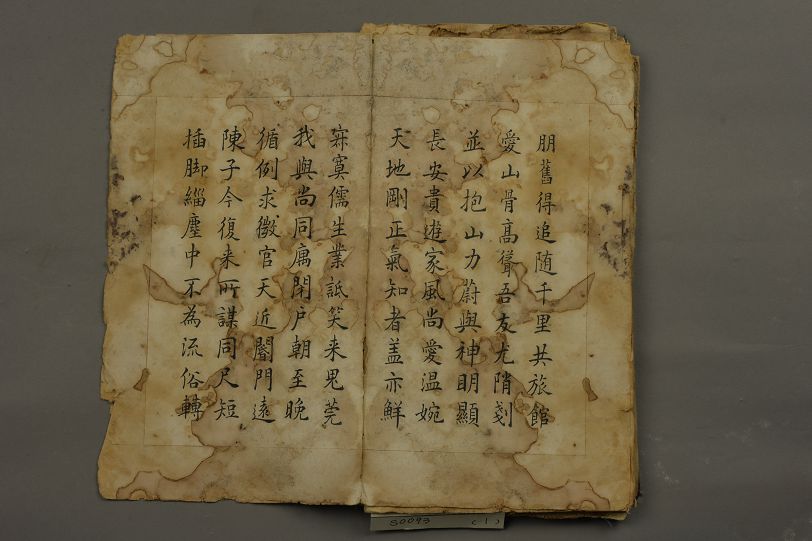 朋舊得追随千里共旅館
愛山骨髙聳吾友尤陗刻
並以抱山力蔚與神明顯
長安貴遊家風尚愛温婉
天地剛正氣知者盖亦鮮
寂寞儒生業詆笑来鬼莞
我與尚同庽閉户朝至晚
循例求微官天近閽門遠
陳子今復来所謀同尺短
插脚緇塵中不為流俗轉
S0093 (1)